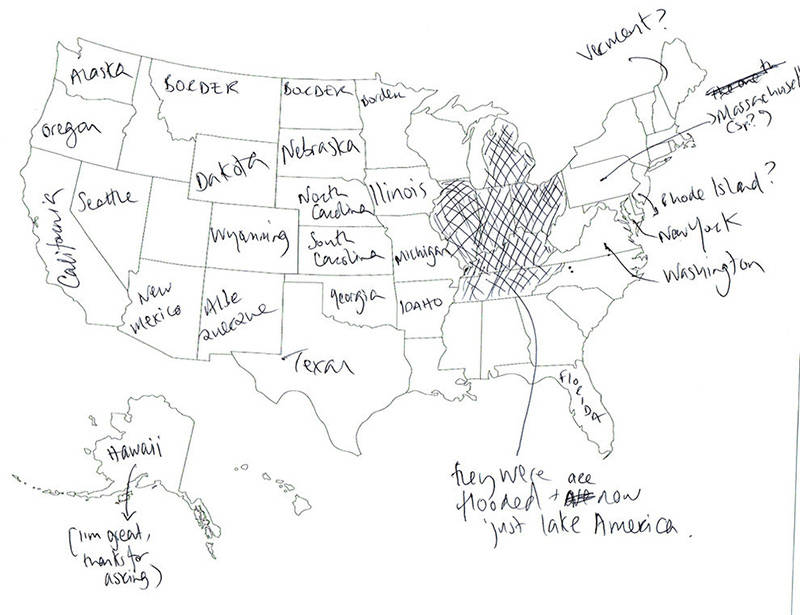 Vermont?
Massachusell
(sp??)
Alaska
BORDER
BORDER
Border
Oregon
Nebraska
Dakota
Seattle
North
Carolina
Illinois
Rhode Island?
New York
California
Wyanning
South
Carolina
Michigan
Washington
New
mexico
Albe
querque
Georgia
IDAHO
Texan
FLORIDA
Hawaii
(I'm great,
thanks for
asking)
they were are
flooded + now
just lake America.